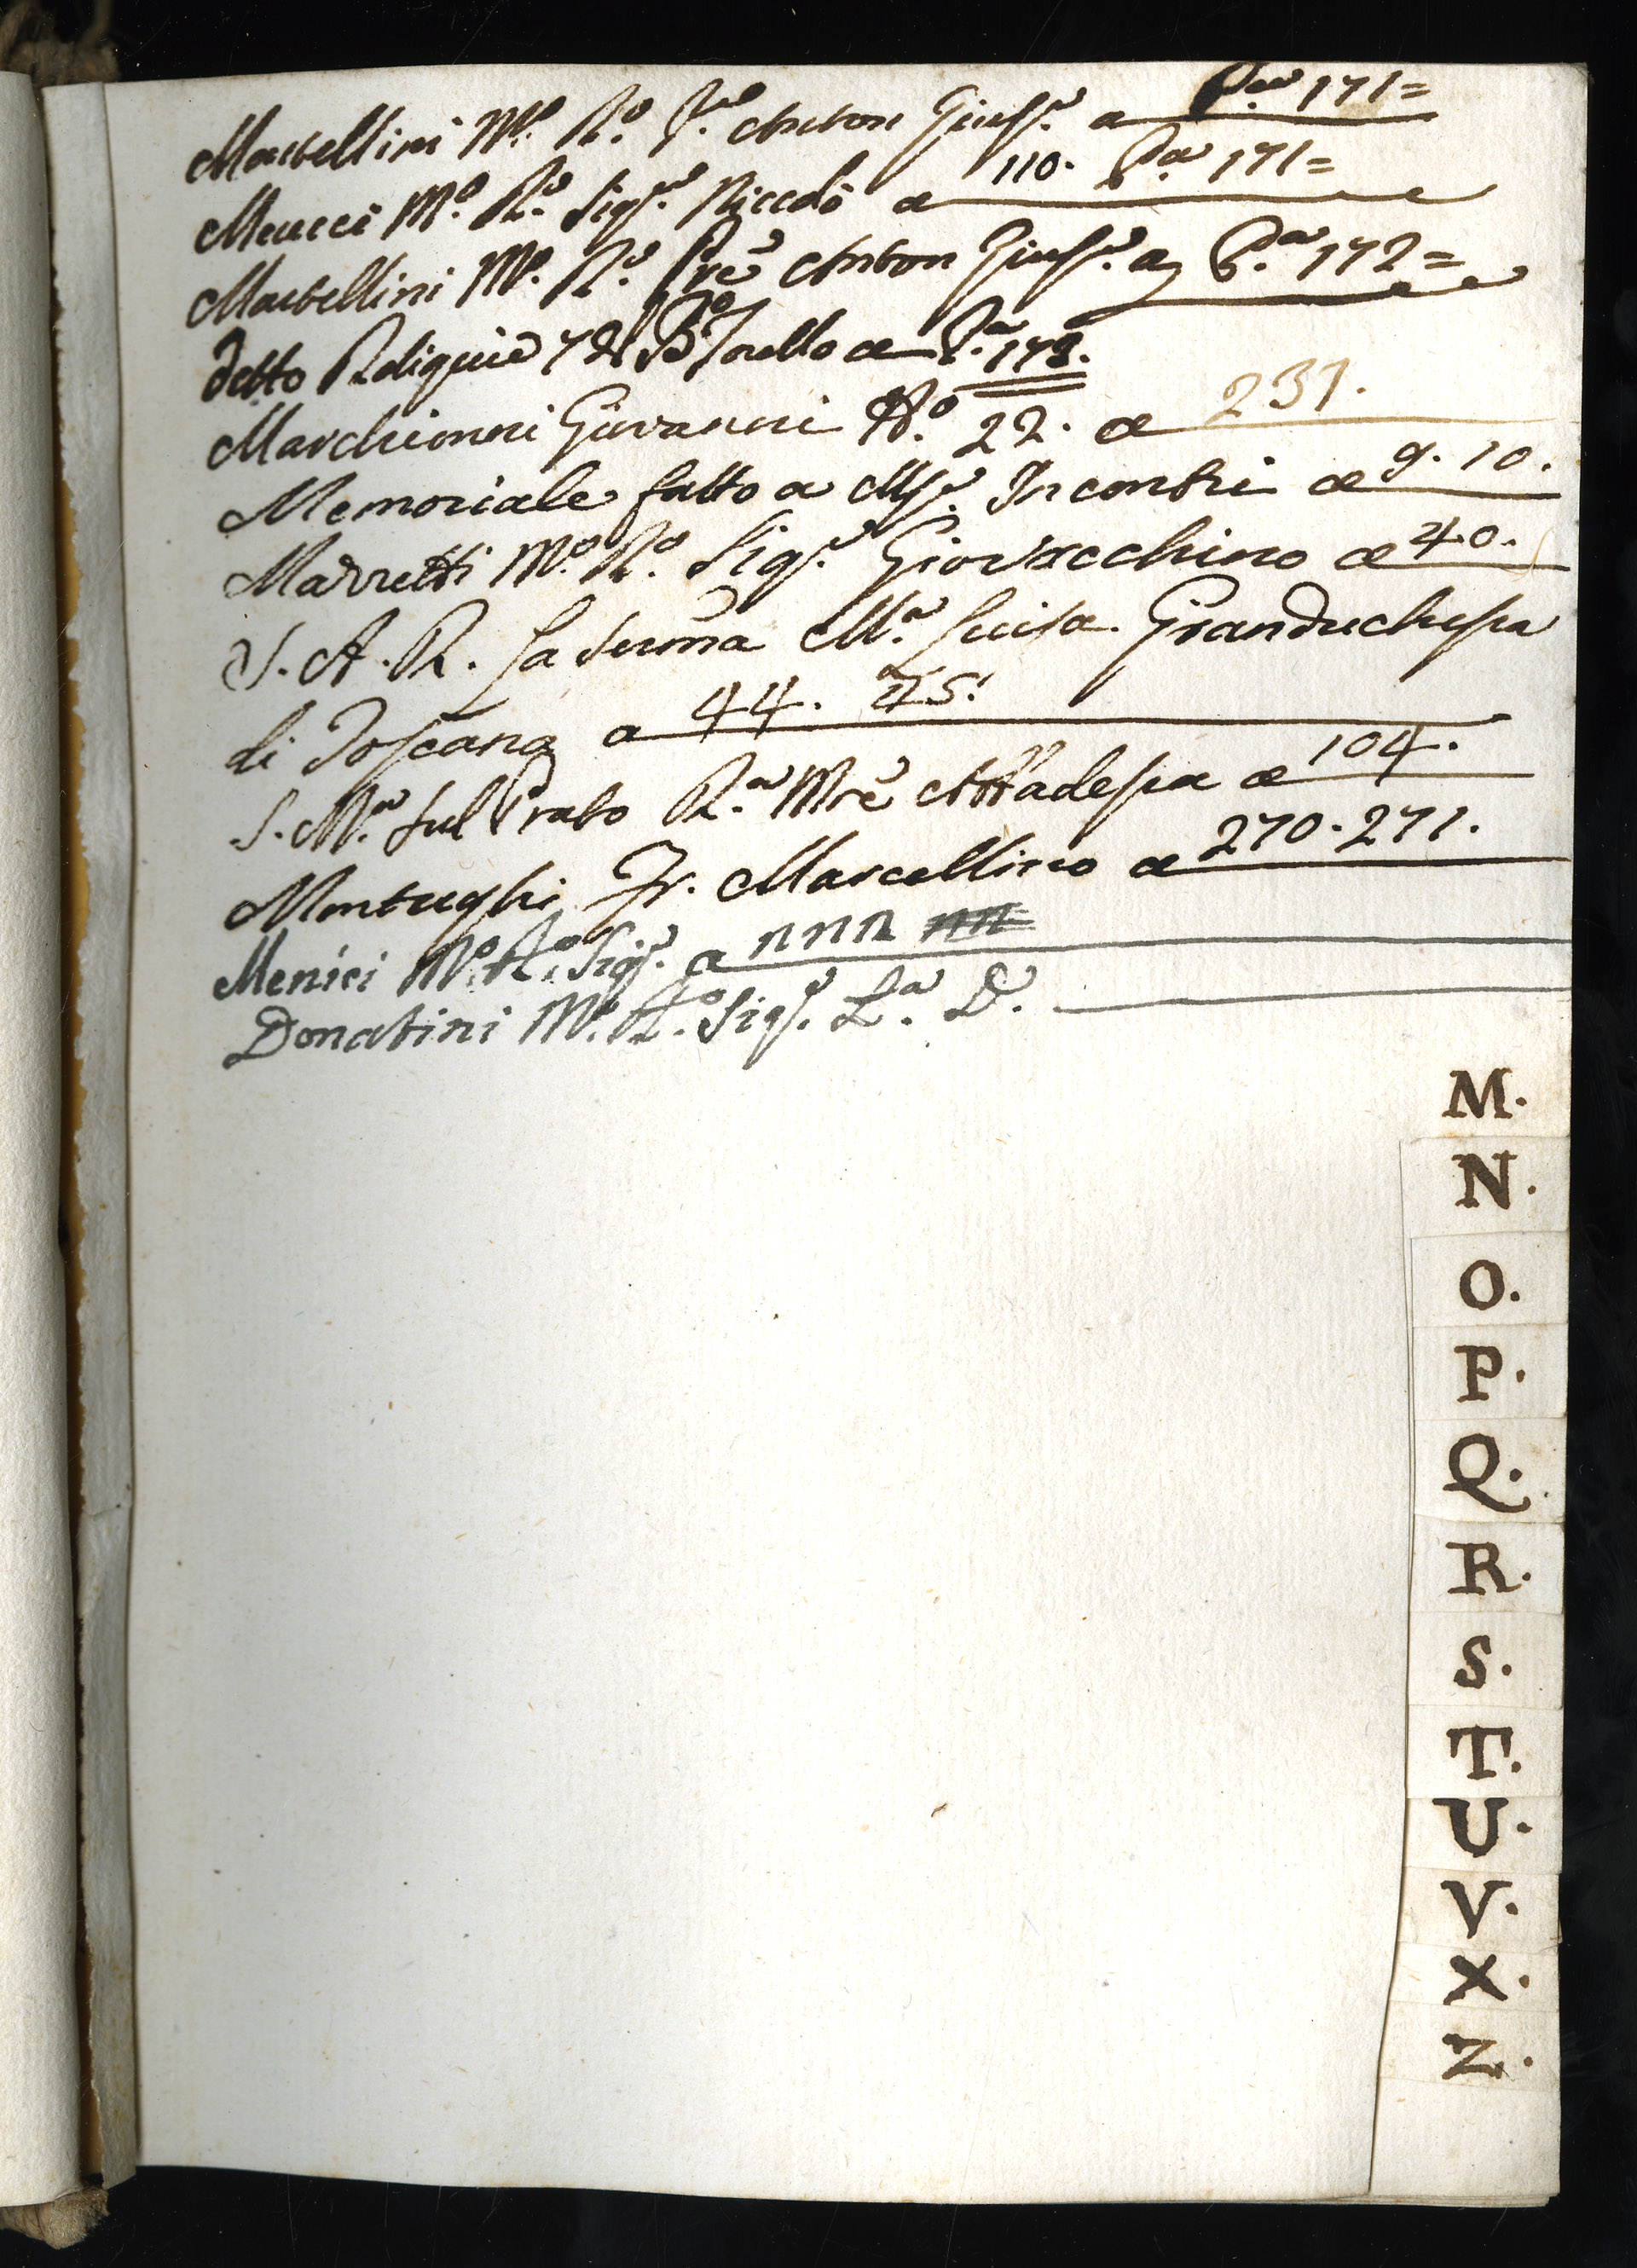 Martellini M.º R.º P.re Anton Gius.e a P.a 171=
Meucci M.º R.º Sig.re Niccolò a 110. P.a 171=
Martellini M.º R.º Prē Anton Gius.e a P.a 172=
detto Reliquie del B.º Torello a P.a 173.
Marchionni Giovanni N.º 22. a 231.
Memoriale fatto a Ms.re Incontri a 9. 10.
Marretti M.º R.º Sig.re Giovacchino a 40.
S. A. R. La Sermā M.a Luisa Granduchessa
di Toscana a 44. 45.
S. M.a sul Prato R.a Mrē Abbadessa a 104.
Montughi Fr. Marcellino a 270. 271.
Menici M.º R.º Sig.re a nnn nn
Donatini M.º R.º Sig.re L.a D.
M.
N.
O.
P.
Q.
R.
S.
T.
U.
V.
X.
Z.